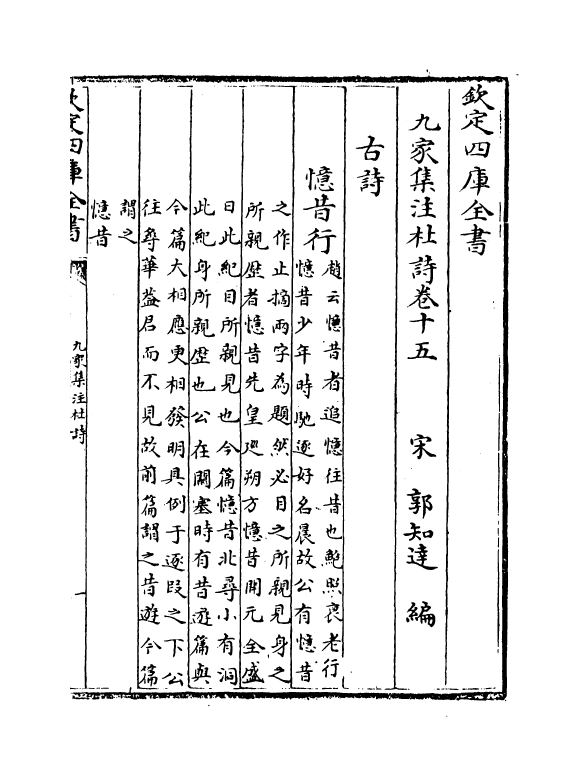 欽定四庫全書
九家集注杜詩卷十五　宋　郭知達　編
古詩
憶昔行
趙云憶昔者追憶往昔也鮑照衰老行
憶昔少年時馳逐好名晨故公有憶昔
之作止摘兩字為題然必目之所親見身之
所親歴者憶昔先皇廵朔方憶昔開元全盛
日此紀目所親見也今篇憶昔北尋小有洞
此紀身所親歴也公在關塞時有昔遊篇與
今篇大相應更相發明具例于逐段之下公
往尋華葢君而不見故前篇謂之昔遊今篇
謂之
憶昔
欽定四庫全書
九家集注杜詩
一